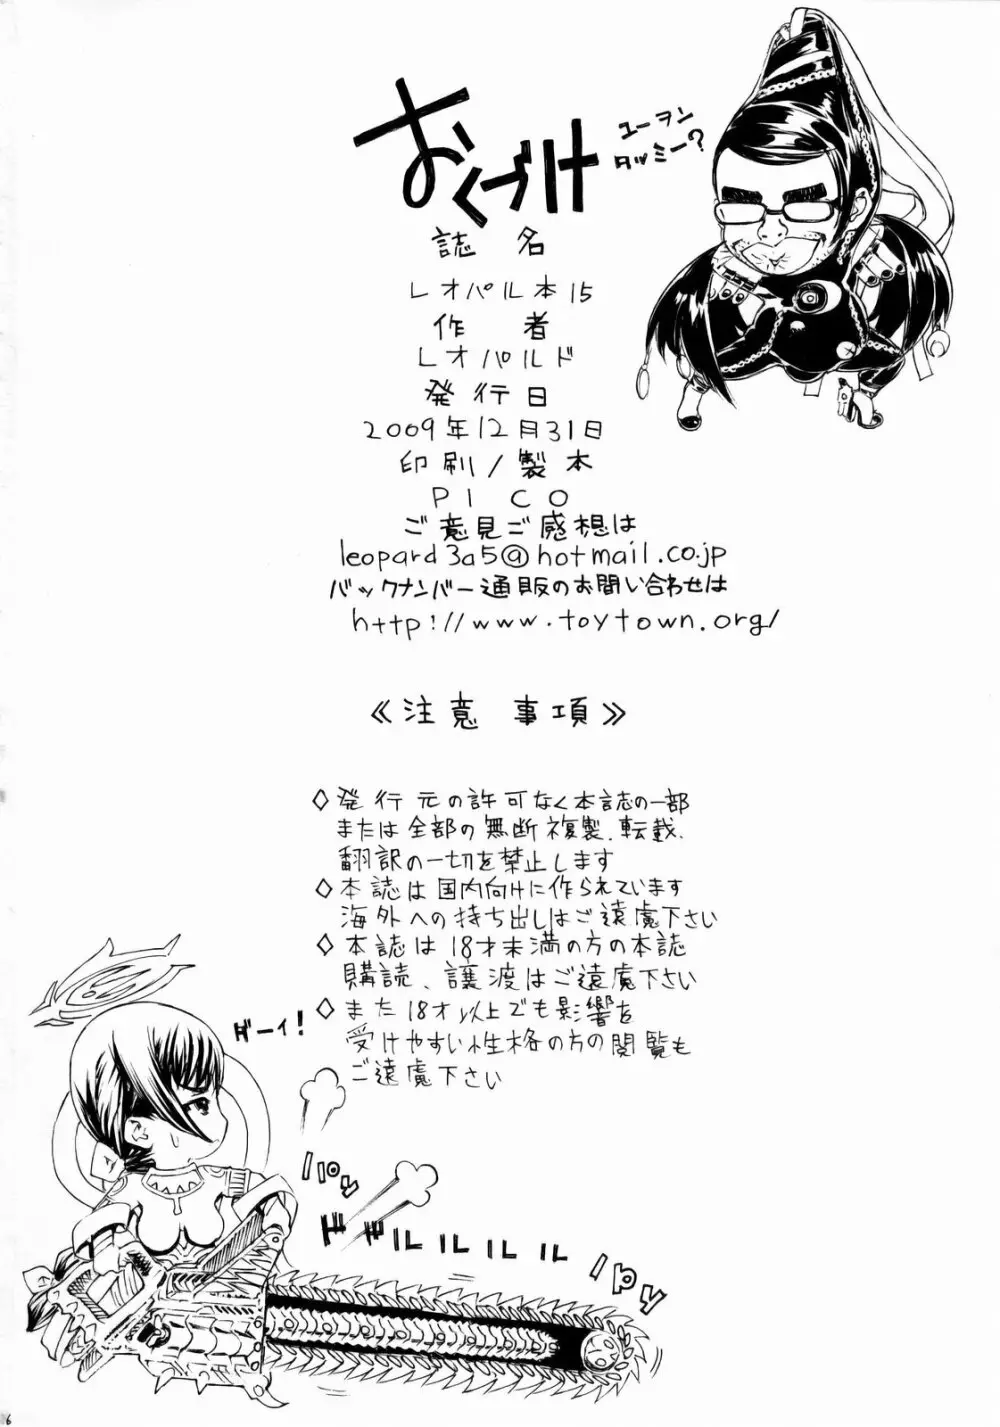 おくづけ
ユーヲン
タッミー?
誌名
レオパル本15
作者
レオパルド
発行日
2009年12月31日
印刷/製本
PICO
ご意見ご感想は
leopard3a5@hotmail.co.jp
バックナンバー通販のお問い合わせは
http://www.toytown.org/
《注意 事項》
◇発行元の許可なく本誌の一部
または全部の無断複製、転載、
翻訳の一切を禁止します
◇本誌は国内向けに作られています
海外への持ち出しはご遠慮下さい
◇本誌は18才未満の方の本誌
購読、譲渡はご遠慮下さい
◇また18才以上でも影響を
受けやすい性格の方の閲覧も
ご遠慮下さい
ギーィ!
パパッ
ドドルルルルル
パパッ
6